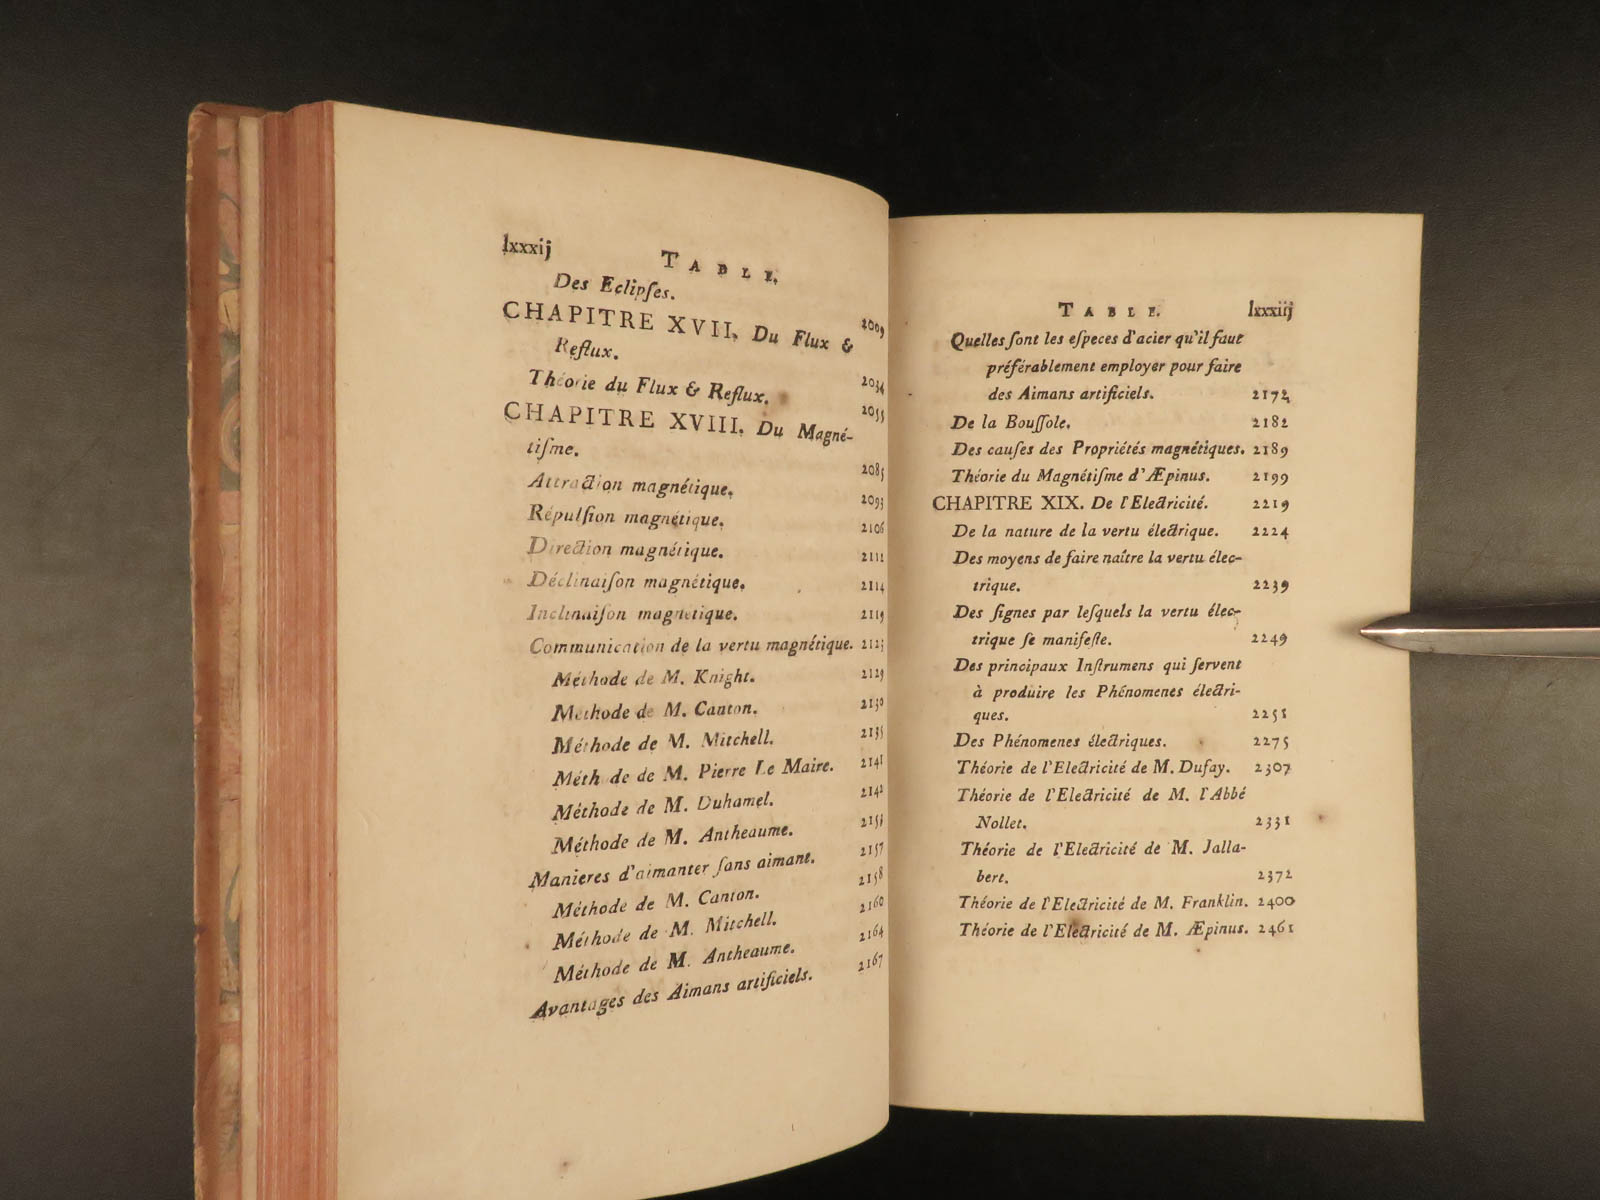 lxxxij TABLE.
Des Eclipſes. 2009
CHAPITRE XVII. Du Flux &
Reflux. 2034
Théorie du Flux & Reflux. 2055
CHAPITRE XVIII. Du Magné-
tiſme. 2085
Attraction magnétique. 2093
Répulſion magnétique. 2106
Direction magnétique. 2112
Déclinaiſon magnétique. 2114
Inclinaiſon magnétique. 2119
Communication de la vertu magnétique. 2123
Méthode de M. Knight. 2129
Méthode de M. Canton. 2130
Méthode de M. Mitchell. 2135
Méthode de M. Pierre Le Maire. 2141
Méthode de M. Duhamel. 2142
Méthode de M. Antheaume.
Manieres d'aimanter ſans aimant. 2157
Méthode de M. Canton. 2158
Méthode de M. Mitchell. 2160
Méthode de M. Antheaume. 2164
Avantages des Aimans artificiels. 2167
TABLE. lxxxiij
Quelles ſont les eſpeces d'acier qu'il faut
préférablement employer pour faire
des Aimans artificiels. 2172
De la Bouſſole. 2182
Des cauſes des Propriétés magnétiques. 2189
Théorie du Magnétiſme d'Æpinus. 2199
CHAPITRE XIX. De l'Electricité. 2219
De la nature de la vertu électrique. 2224
Des moyens de faire naître la vertu élec-
trique. 2239
Des ſignes par leſquels la vertu élec-
trique ſe manifeſte. 2249
Des principaux Inſtrumens qui ſervent
à produire les Phénomenes électri-
ques. 2251
Des Phénomenes électriques. 2275
Théorie de l'Electricité de M. Dufay. 2307
Théorie de l'Electricité de M. l'Abbé
Nollet. 2331
Théorie de l'Electricité de M. Jalla-
bert. 2372
Théorie de l'Electricité de M. Franklin. 2400
Théorie de l'Electricité de M. Æpinus. 2461